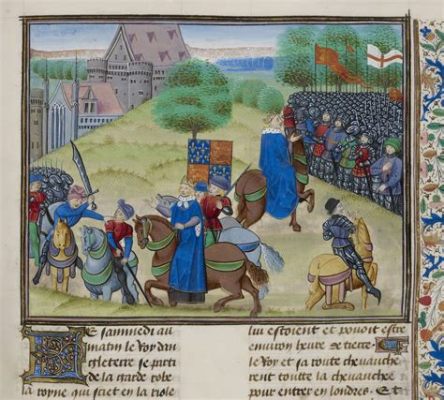 LE sammedi au
matin le Roy dan
gleterre se parti
de la garde robe
la royne qui siet en la riole
lui estoient et pouoit estre
environ heure de tierce
le Roy et sa route chevauche
rent toutte la chevauchee
pour entrer en londres. Et